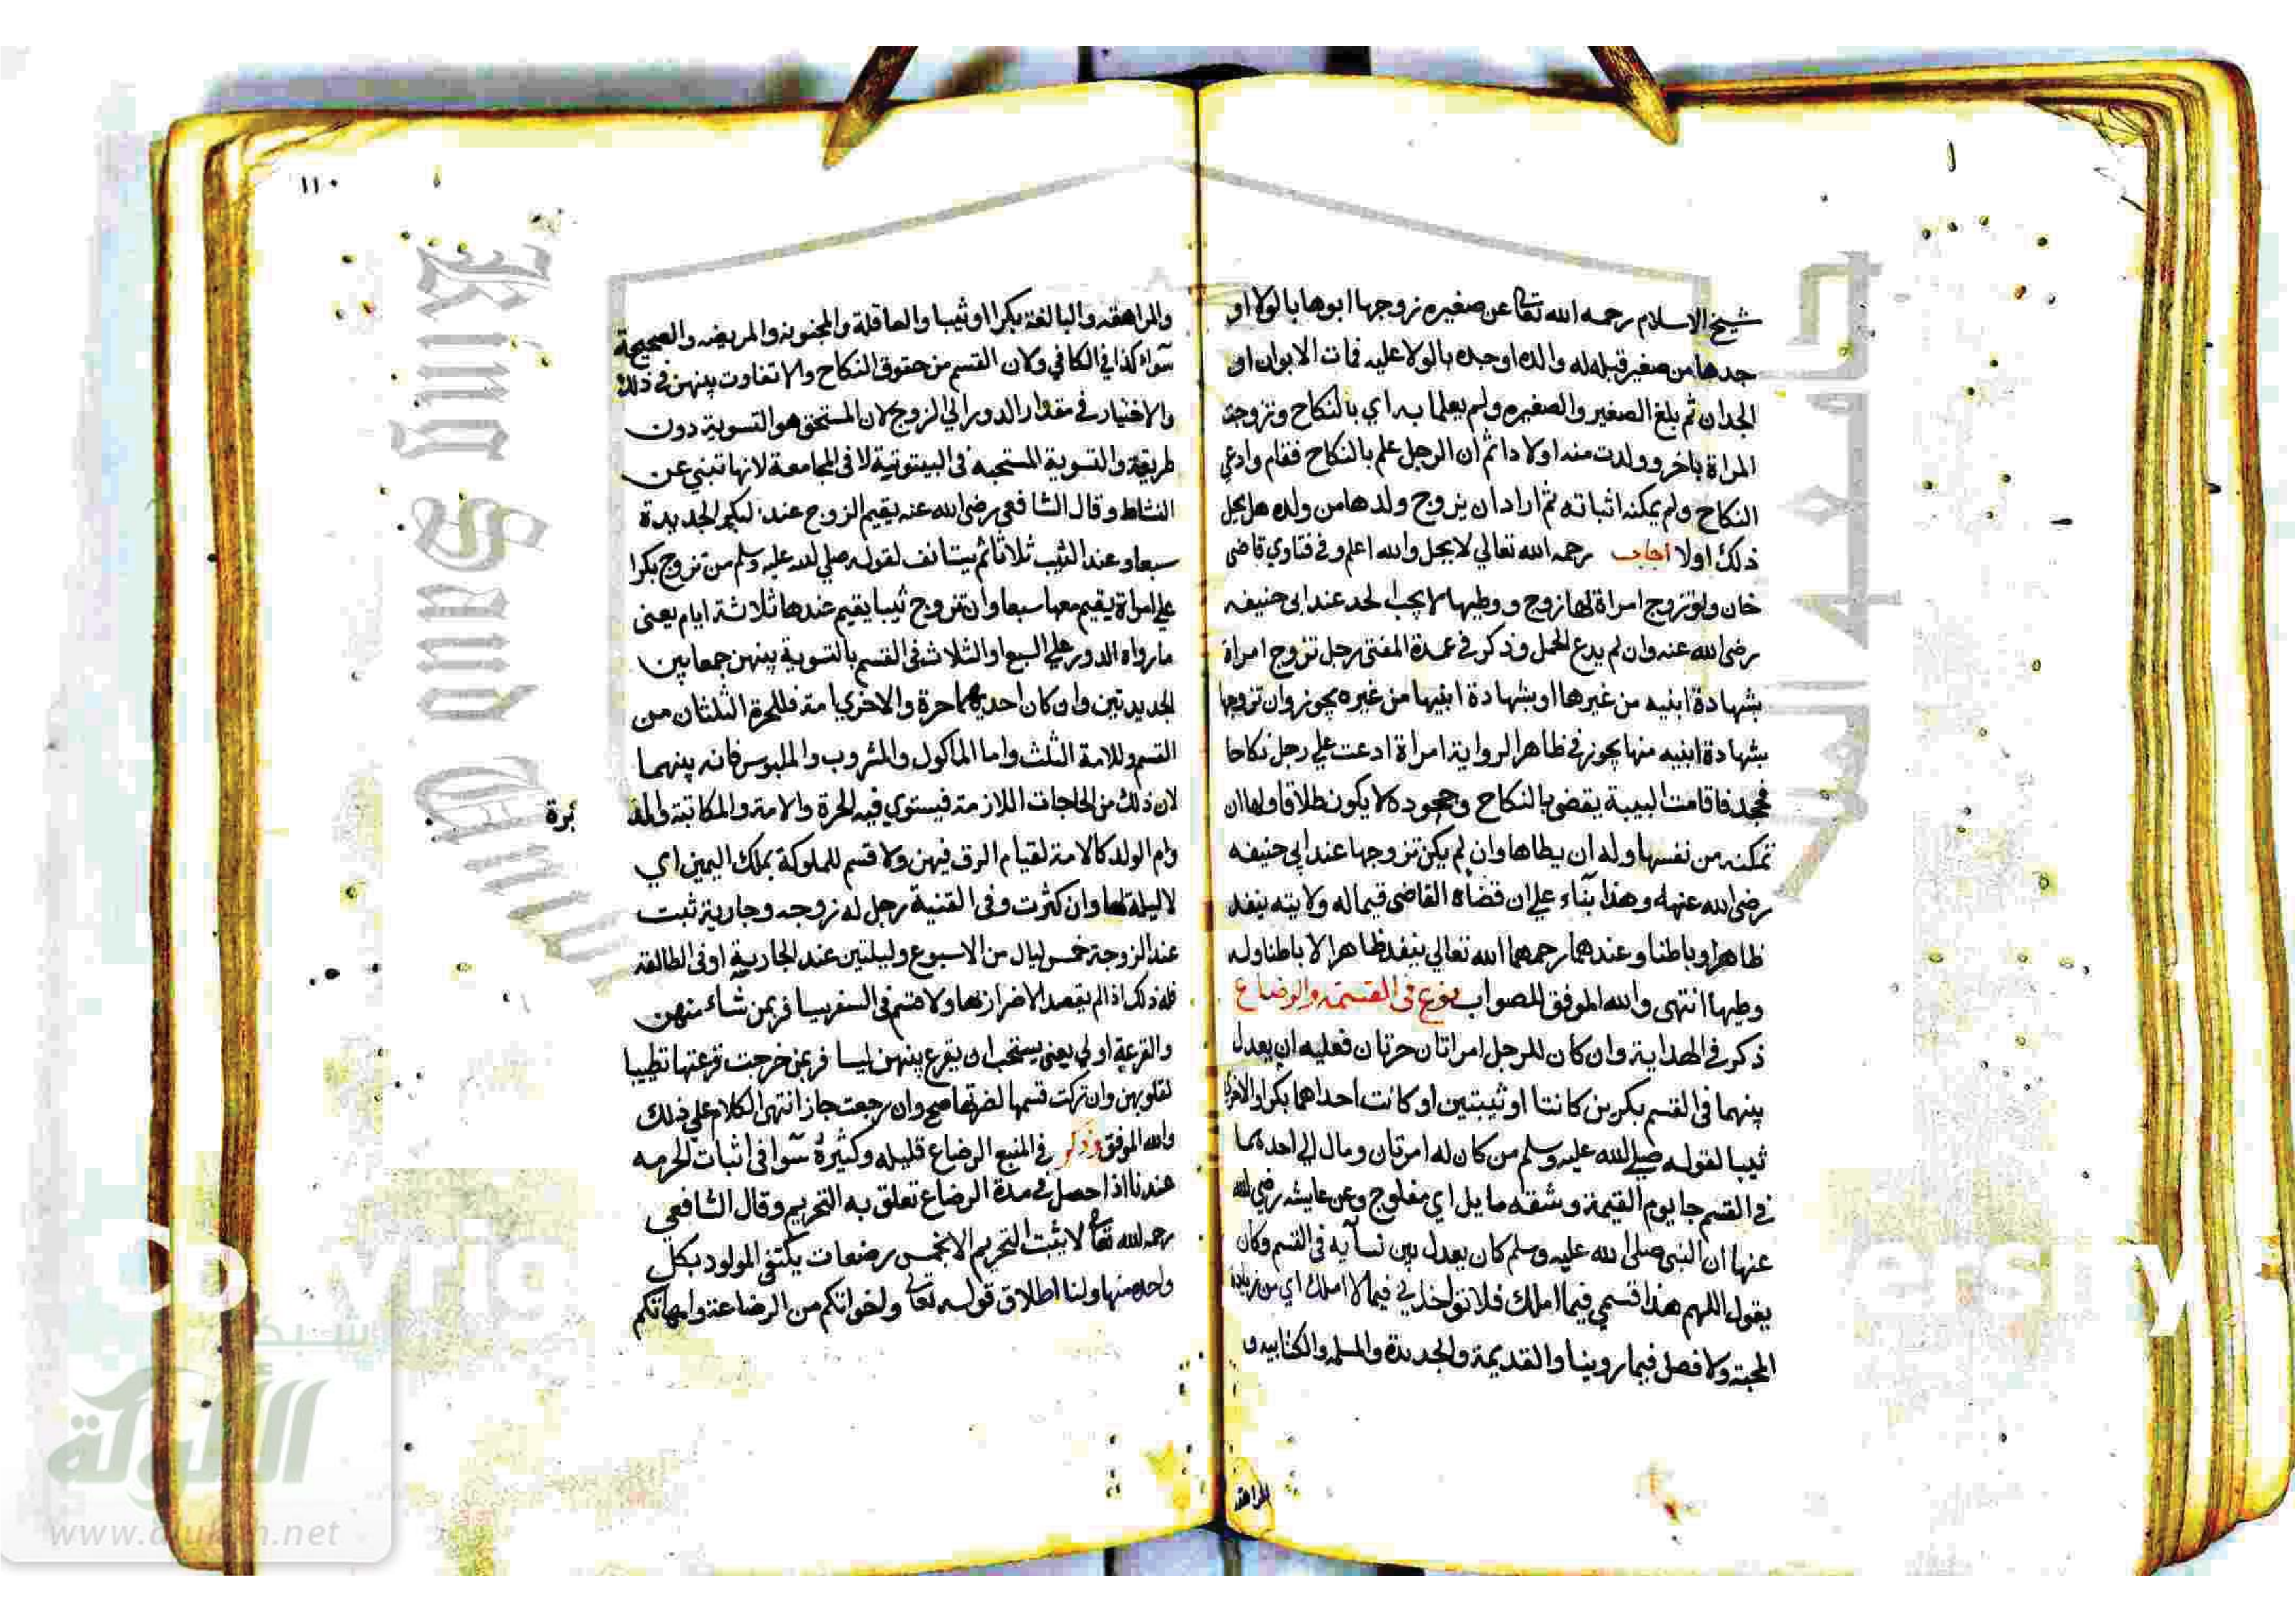 شيخ الاسلام رحمه الله تعا عن صغيره زوجها ابوها بالولا او
جدها من صغير قبله له والده او جده بالولا عليه فمات الابوان او
الجدان ثم بلغ الصغير والصغيره ولم يعلما به اي بالنكاح وتزوجة
المراة باخر وولدت منه اولادا ثم ان الرجل علم بالنكاح فقام وادعي
النكاح ولم يمكنه اثباته ثم اراد ان يزوج ولدها من ولده هل يحل
ذلك اولا اجاب رحمه الله تعالي لا يحل والله اعلم وفي فتاوي قاضى
خان ولو تزوج امراة لها زوج ووطيها لا يجب الحد عند ابى حنيفه
رضى الله عنه وان لم يدع الحمل وذكر في عمدة المفتى رجل تزوج امراة
بشهادة ابنيه من غيرها او بشهادة ابنيها من غيره يجوز وان تزوجها
بشهادة ابنيه منها يجوز في ظاهر الرواية امراة ادعت علي رجل نكاحا
فجحد فاقامت البينة يقضي بالنكاح وجحوده لا يكون طلاقا ولها ان
تمكنه من نفسها وله ان يطاها وان لم يكن تزوجها عند ابي حنيفه
رضى الله عنه وهذا بناء علي ان قضاه القاضى فيما له ولايته ينفد
ظاهرا وباطنا وعندهما رحمهما الله تعالي ينفد ظاهرا لا باطنا وله
وطيها انتهى والله الموفق للصواب نوع في القسمة والرضاع
ذكر في الهداية وان كان للرجل امراتان حرتان فعليه ان يعدل
بينهما في القسم بكرين كانتا او ثيبتين او كانت احداهما بكرا والاخرى
ثيبا لقوله صلي الله عليه وسلم من كان له امرتان ومال الي احدهما
في القسم جا يوم القيمة وشقه مايل اي مفلوج وعن عايشه رضي الله
عنها ان النبى صلى الله عليه وسلم كان يعدل بين نسآيه في القسم وكان
يقول اللهم هذا قسمي فيما املك فلا تواخذني فيما لا املك اي من زيادة
المحبة ولا فصل فيما روينا والقديمة والجديدة والمسلمه والكتابيه و
المراهقه
١١٠
والمراهقه والبالغة بكرا او ثيبا والعاقلة والمجنونه والمريضه والصحيحة
سوآء كذا في الكافي ولان القسم من حقوق النكاح ولا تفاوت بينهن في ذلك
والاختيار في مقدار الدور الي الزوج لان المستحق هو التسوية دون
طريقة والتسوية المستحبه في البيتوتية لا في المجامعة لانها تبني عن
النشاط وقال الشافعي رضى الله عنه يقيم الزوج عند البكر الجديدة
سبعا وعند الثيب ثلاثا ثم يستانف لقوله صلي الله عليه وسلم من تزوج بكرا
علي امراة يقيم معها سبعا وان تزوج ثيبا يقيم عندها ثلاثة ايام يعنى
مارواه الدور علي السبع او الثلاث في القسم بالتسوية بينهن جمعا بين
الجديدتين وان كان احديهما حرة والاخري امة فللحرة الثلثان من
القسم وللامة الثلث واما الماكول والمشروب والملبوس فانه بينهما
لان ذلك من الحاجات اللازمة فيستوي فيه الحرة والامة والمكاتبة والمد
برة
وام الولد كالامة لقيام الرق فيهن ولا قسم للملوكة بملك اليمين اي
لا ليلة لها وان كثرت وفى القنية رجل له زوجه وجارية ثبت
عند الزوجة خمس ليال من الاسبوع وليلتين عند الجارية او في الطالقة
فله ذلك اذا لم يقصد الاضرار لها ولا قسم في السفر يسافر بمن شاء منهن
والقرعة اولي يعنى يستحب ان يقرع بينهن ليسافر بمن خرجت قرعتها تطييبا
لقلوبهن وان تركت قسمها لضرتها صح وان رجعت جاز انتهى الكلام علي ذلك
والله الموفق وذكر في المنبع الرضاع قليله وكثيرة سوآ في اثبات الحرمه
عندنا اذا حصل في مدة الرضاع تعلق به التحريم وقال الشافعي
رحمه الله تعا لا يثبت التحريم الا بخمس رضعات يكتفي المولود بكل
واحده منها ولنا اطلاق قوله تعالى واخواتكم من الرضاعة وامهاتكم
King Saud
جامعة الملك
شبكة
الألوكة
www.alukah.net